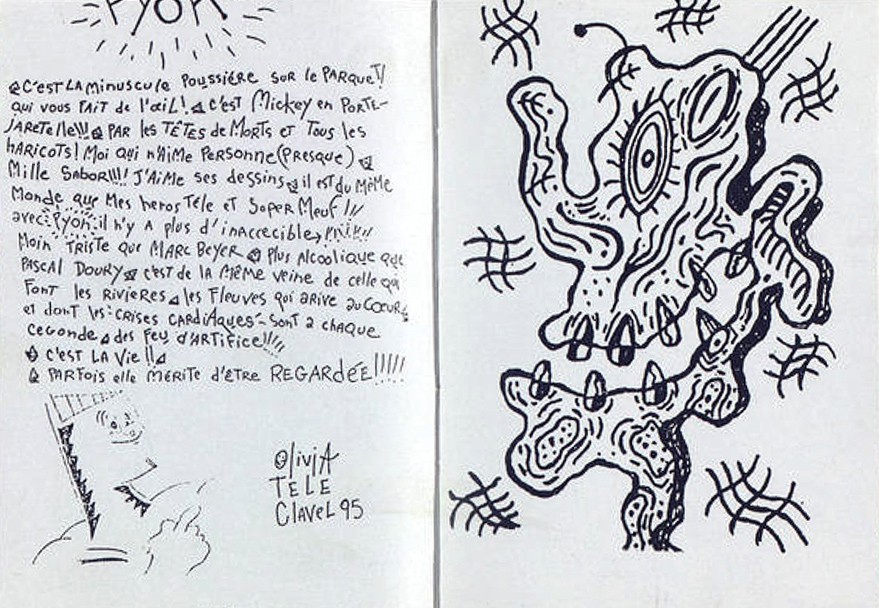 PYON
C'EST LA minuscule Poussiére sur le PARQUET!
qui vous FAIT de l'œiL! c'est Mickey en Porte-
JAreTelle!!! PAR les TÊTES de MorTs et Tous les
hARicoTs! Moi qui n'Aime Personne (Presque)
Mille Sabor!!!! J'Aime ses dessins il est du MêMe
Monde que Mes heros Tele et SuPer Meuf!!!
avec Pyon il n'y A plus d'inaccecible
Moin TrisTe que MARC BeYer Plus Alcoolique que
PASCAL DOURY c'est de la MÊMe veine de celle qui
FonT les RivieRes les Fleuves qui arive au Cœur
et donT les-crises cardiAques-sont a chaque
cegonde des feu d'ARTifice!!!!
c'est LA Vie!!
PArfois elle mérite d'être REGARDéE!!!!!
OlivIA
TELE
Clavel 95